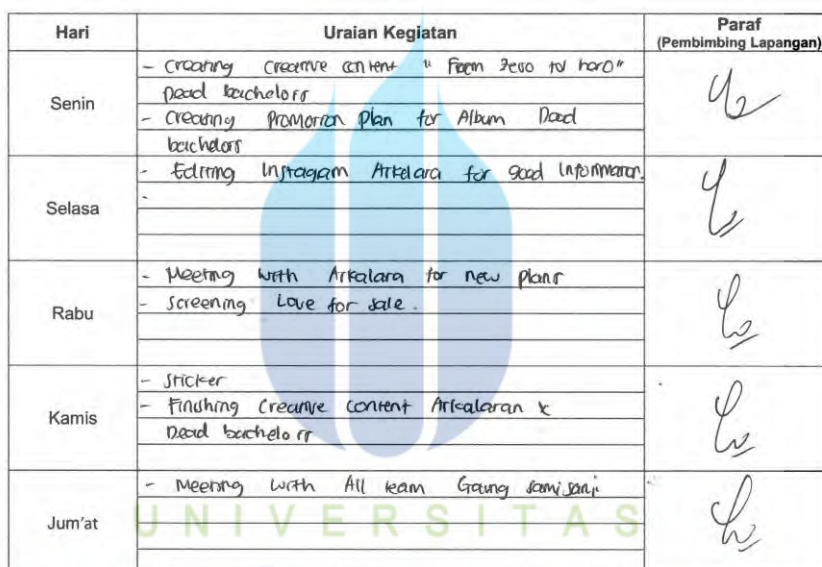 Hari Uraian Kegiatan Paraf
(Pembimbing Lapangan)
Senin
- Creating Creative content "From Zero to hero"
Dead bachelors
- Creating Promotion Plan for Album Dead
bachelors
Selasa
- Editing Instagram Arkalara for good Information.
-
Rabu
- Meeting with Arkalara for new plans
- Screening Love for sale.
Kamis
- Sticker
- Finishing Creative content Arkalaran &
Dead bachelors
Jum'at
- Meeting with All team Gaung
UNIVERSITAS